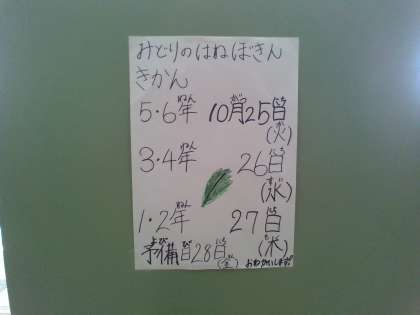 みどりのはねぼきん
きかん
5・6年 10月25日
(火)
3・4年 26日
(水)
1・2年 27日
(木)
予備日28日(金) おねがいします!